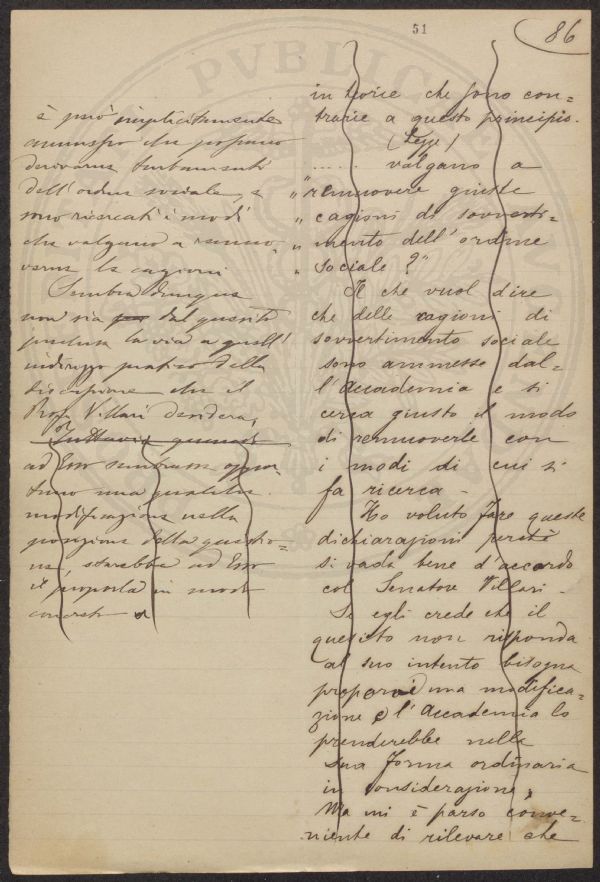 51
86
è però implicitamente
ammesso che possano
derivarne turbamenti
dell'ordine sociale, e
sono ricercati i modi
che valgano a rimuo-
verne le cagioni
Sembra dunque
non sia dal quesito
preclusa la via a quell'
indirizzo pratico della
discussione che il
Prof. Villari desidera,
Tuttavia quando
ad Esso sembrasse oppor-
tuno una qualche
modificazione nella
posizione della questio-
ne, starebbe ad Esso
il proporla in modo
concreto
in teorie che sono con=
trarie a questo principio.
(Legge)
...... valgano a
" remuovere giuste
" cagioni di sovverti-
" mento dell'ordine
" sociale?"
Il che vuol dire
che delle cagioni di
sovvertimento sociale
sono ammesse dal=
l'Accademia e si
cerca giusto il modo
di remuoverle con
i modi di cui si
fa ricerca -
Ho voluto fare queste
dichiarazioni perchè
si vada bene d'accordo
col Senatore Villari -
Se egli crede che il
quesito non risponda
al suo intento bisogna
proporre una modifica=
zione e l'Accademia lo
prenderebbe nella
sua forma ordinaria
in considerazione,
Ma mi è parso conve=
niente di rilevare che